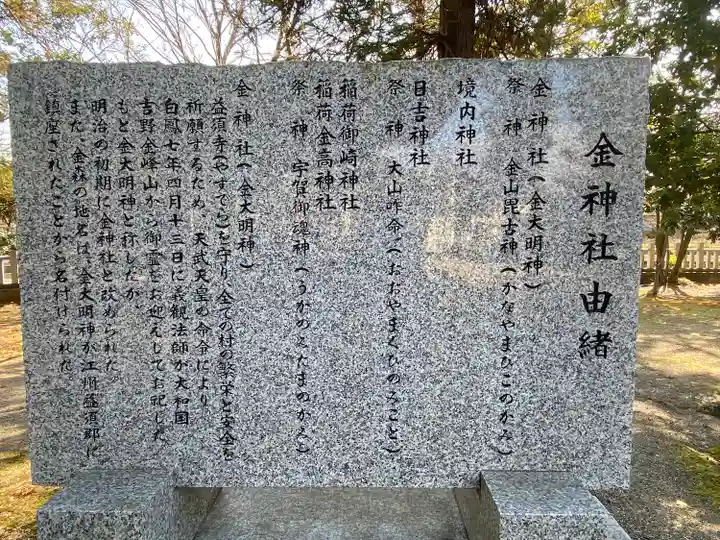 金神社由緒
金神社(金大明神)
祭神 金山毘古神(かなやまひこのかみ)
境内神社
日吉神社
祭神 大山咋命(おおやまくひのみこと)
稲荷御崎神社
稲荷金高神社
祭神 宇賀御魂神(うかのみたまのかみ)
金神社(金大明神)
益須寺(やすでら)を守り、全ての村の繁栄と安全を
祈願するため、天武天皇の命令により
白鳳七年四月十三日に義観法師が大和国
吉野金峰山から御霊をお迎えしてお祀した
もと金大明神と称したが、
明治の初期に金神社と改められた
また、金森の地名は、金大明神が江州益須郡に
鎮座されたことから名付けられた